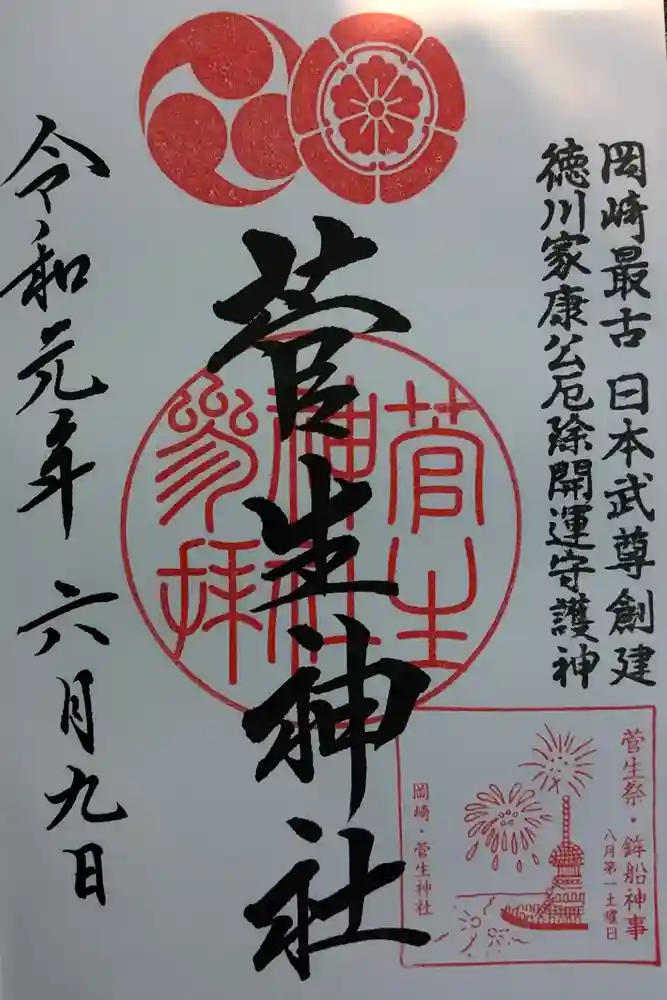 岡崎最古 日本武尊創建
徳川家康公厄除開運守護神
菅生神社
令和元年 六月九日
菅生
神社
参拝
菅生祭・鉾船神事
八月第一土曜日
岡崎・菅生神社